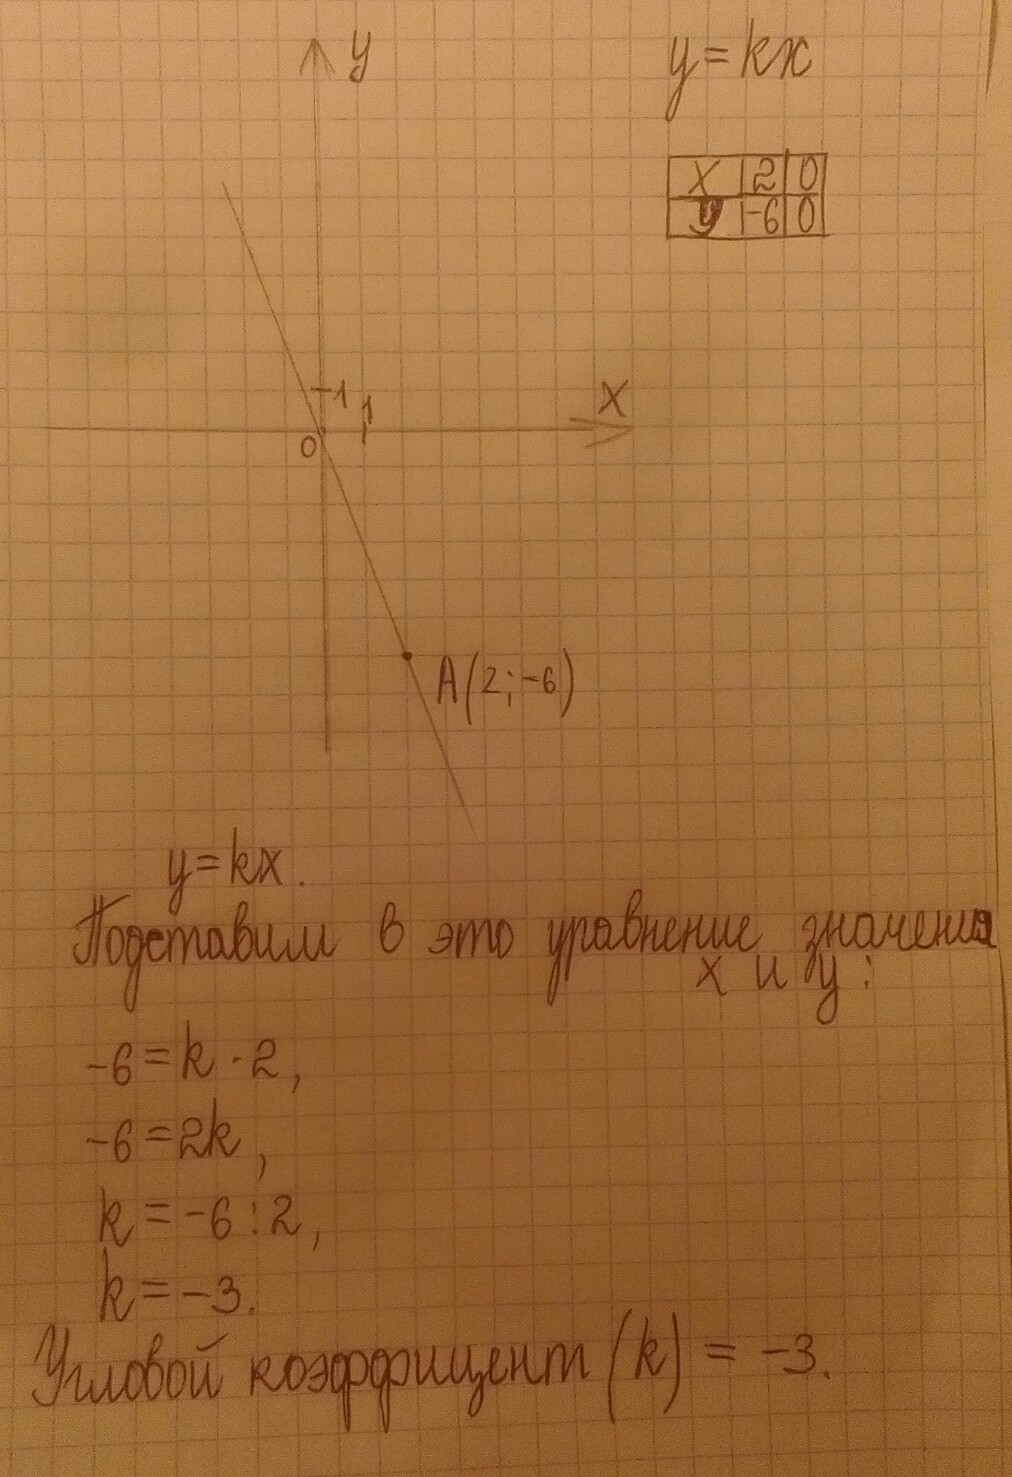 y
y = kx
x 2 0
y -6 0
1
1
x
0
A(2; -6)
y = kx.
Подставим в это уравнение значения
x и y:
-6 = k · 2,
-6 = 2k,
k = -6 : 2,
k = -3.
Угловой коэффициент (k) = -3.